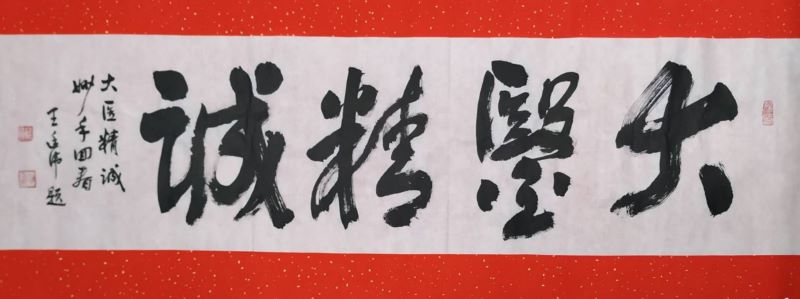 大醫精誠
大医精诚
妙手回春
王玉伟题